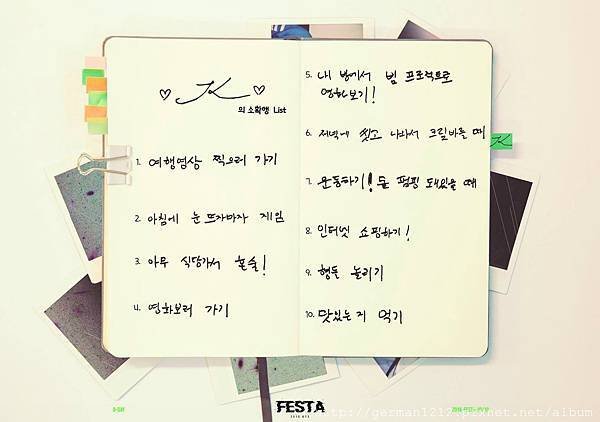 ♡ JK ♡
의 소확행 List
1. 여행영상 찍으러 가기
2. 아침에 눈뜨자마자 게임
3. 아무 식당가서 혼술!
4. 영화보러 가기
5. 내 방에서 빔 프로젝트로
영화보기!
6. 저녁에 씻고 나와서 크림바를 때
7. 운동하기! 몸 펌핑 돼있을 때
8. 인터넷 쇼핑하기!
9. 형들 놀리기
10. 맛있는 거 먹기
JK
D-DAY
FESTA
2018 BTS
http://german1212.pixnet.net/album